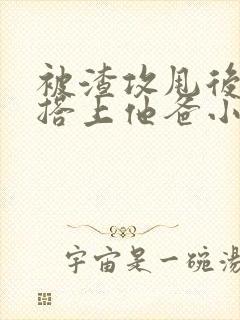 被渣攻甩後
搭上他爸小
宇宙是一碗湯